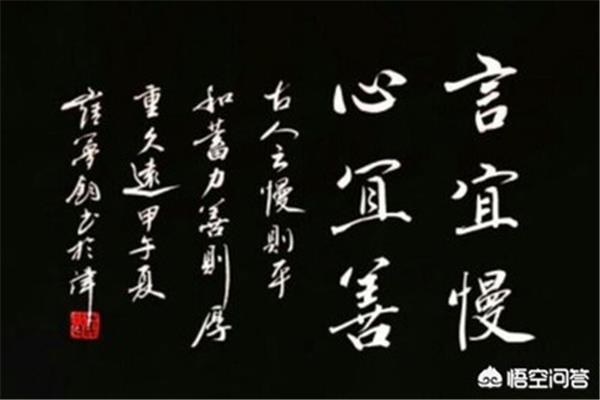 言宜慢
心宜善
古人云慢則平
和蓄力善則厚
重久遠甲午夏
崔夢鈞书於津
悟空问答